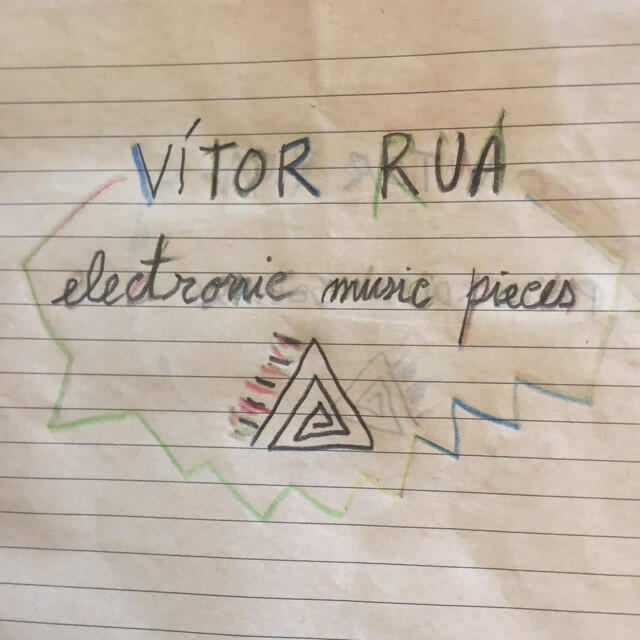 VÍTOR RUA
electronic music pieces